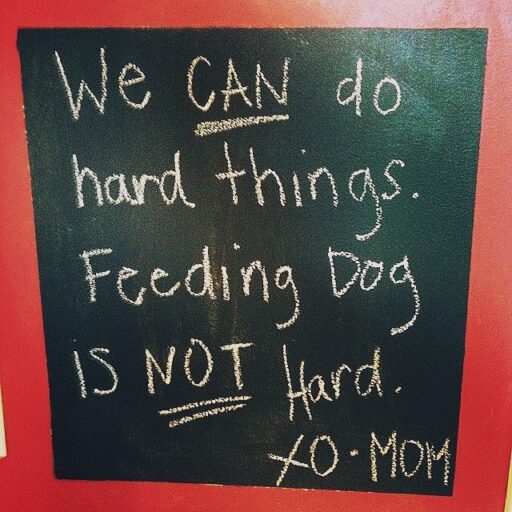 We CAN do
hard things.
Feeding Dog
IS NOT Hard.
XO-MOM